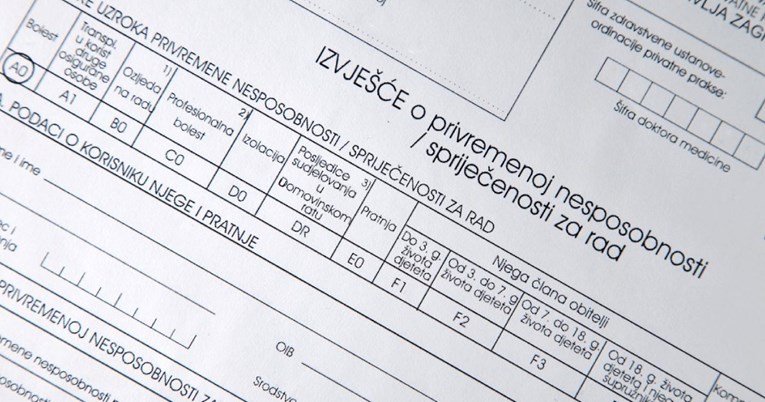 Šifra zdravstvene ustanove-
ordinacije privatne prakse:
Šifra doktora medicine
IZVJEŠĆE o privremenoj nesposobnosti
/ spriječenosti za rad
UZROKA PRIVREMENE NESPOSOBNOSTI / SPRIJEČENOSTI ZA RAD
Bolest
A0
Transpl.
u korist
druge
osigurane
osobe
A1
1)
Ozljeda
na radu
B0
Profesionalna
bolest
C0
2)
Izolacija
D0
Posljedice
sudjelovanja
u
Domovinskom
ratu
DR
3)
Pratnja
E0
Njega člana obitelji
Do 3. g.
života
djeteta
F1
Od 3. do 7. g.
života djeteta
F2
Od 7. do 18. g.
života
djeteta
F3
Od 18. g.
života
djeteta i
PODACI O KORISNIKU NJEGE I PRATNJE
i ime
OIB
Srodstvo
PRIVREMENOJ NESPOSOBNOSTI